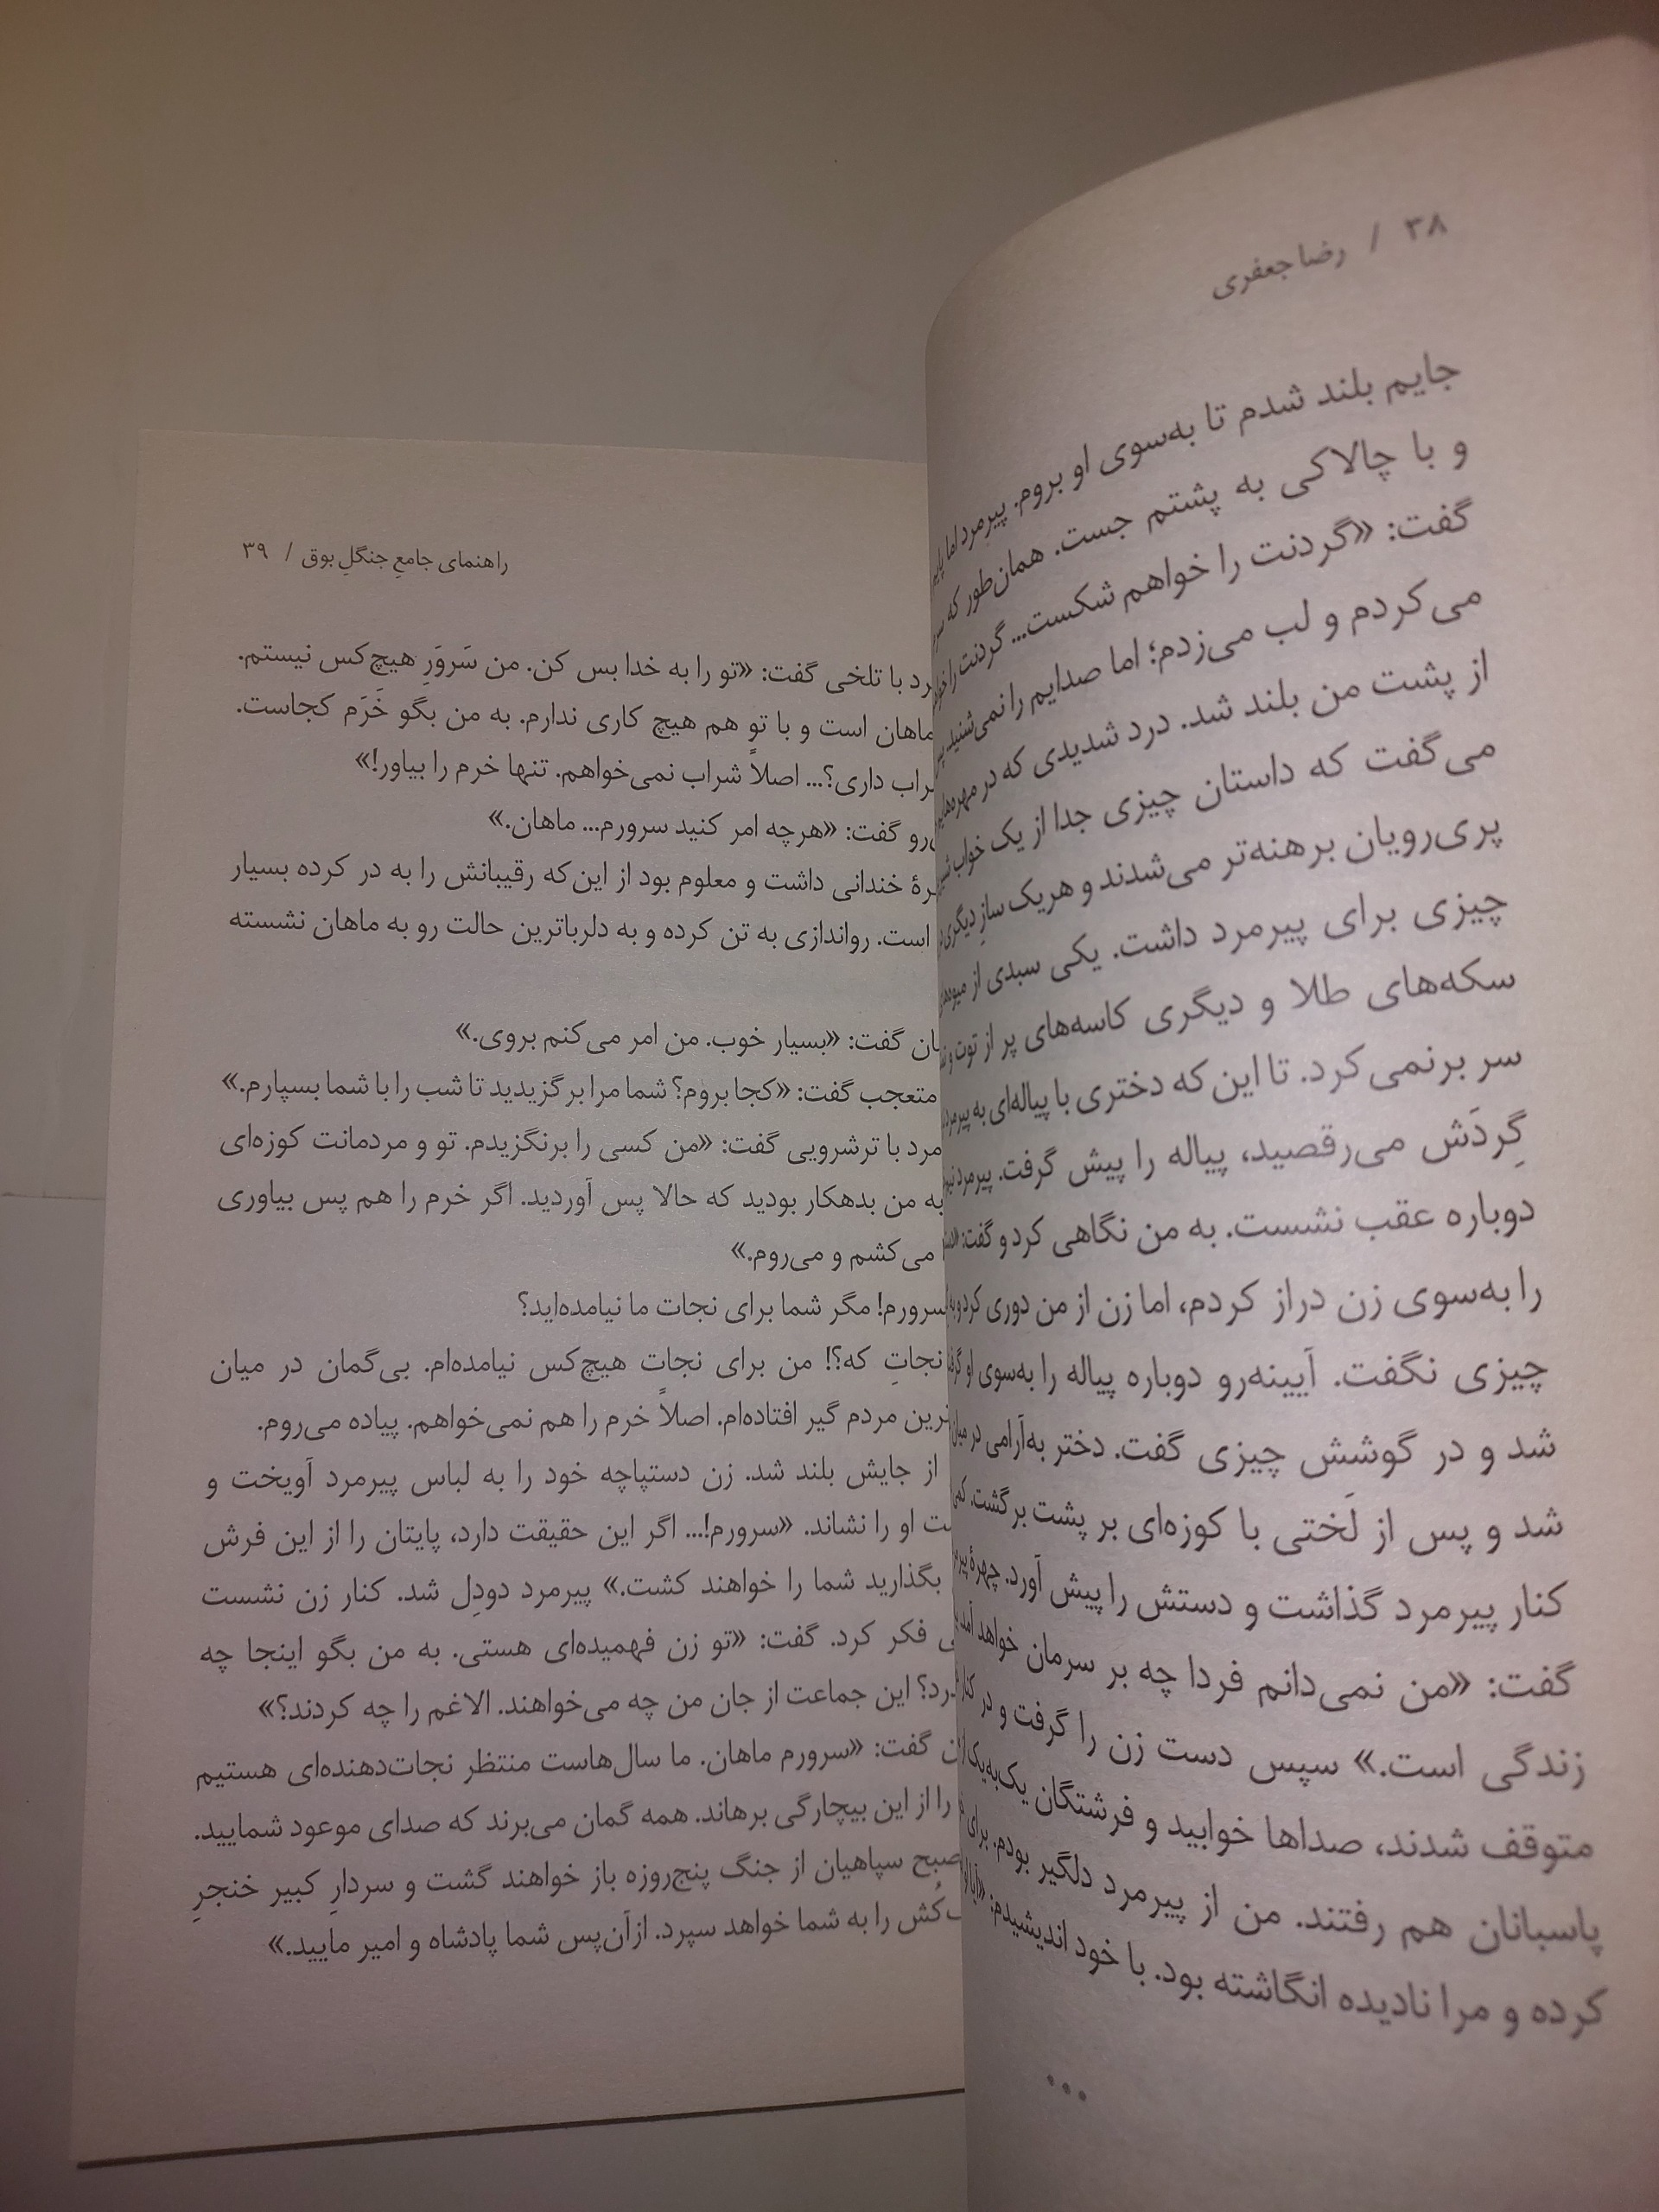 ۳۸ / رضا جعفری
جایم بلند شدم تا به‌سوی او بروم. پیرمرد اما
و با چالاکی به پشتم جست. همان‌طور که
گفت: «گردنت را خواهم شکست... گردنت را
می‌کردم و لب می‌زدم؛ اما صدایم را نمی‌شنید.
از پشت من بلند شد. درد شدیدی که در
می‌گفت که داستان چیزی جدا از یک خواب
پری‌رویان برهنه‌تر می‌شدند و هریک سازِ دیگری
چیزی برای پیرمرد داشت. یکی سبدی از
سکه‌های طلا و دیگری کاسه‌های پر از توت و
سر برنمی‌کرد. تا این‌که دختری با پیاله‌ای به
گِردَش می‌رقصید، پیاله را پیش گرفت. پیرمرد
دوباره عقب نشست. به من نگاهی کرد و گفت:
را به‌سوی زن دراز کردم، اما زن از من دوری کرد
چیزی نگفت. آیینه‌رو دوباره پیاله را به‌سوی او
شد و در گوشش چیزی گفت. دختر به‌آرامی در
شد و پس از لَختی با کوزه‌ای بر پشت برگشت.
کنار پیرمرد گذاشت و دستش را پیش آورد. چهرهٔ
گفت: «من نمی‌دانم فردا چه بر سرمان خواهد آمد
زندگی است.» سپس دست زن را گرفت و در
متوقف شدند، صداها خوابید و فرشتگان یک‌به‌یک
پاسبانان هم رفتند. من از پیرمرد دلگیر بودم. برای
کرده و مرا نادیده انگاشته بود. با خود اندیشیدم:
...
راهنمای جامعِ جنگلِ بوق / ۳۹
با تلخی گفت: «تو را به خدا بس کن. من سَروَرِ هیچ‌کس نیستم.
ماهان است و با تو هم هیچ کاری ندارم. به من بگو خَرَم کجاست.
داری؟... اصلاً شراب نمی‌خواهم. تنها خرم را بیاور!»
گفت: «هرچه امر کنید سرورم... ماهان.»
خندانی داشت و معلوم بود از این‌که رقیبانش را به در کرده بسیار
است. رواندازی به تن کرده و به دلرباترین حالت رو به ماهان نشسته
گفت: «بسیار خوب. من امر می‌کنم بروی.»
متعجب گفت: «کجا بروم؟ شما مرا برگزیدید تا شب را با شما بسپارم.»
مرد با ترشرویی گفت: «من کسی را برنگزیدم. تو و مردمانت کوزه‌ای
به من بدهکار بودید که حالا پس آوردید. اگر خرم را هم پس بیاوری
می‌کشم و می‌روم.»
سرورم! مگر شما برای نجات ما نیامده‌اید؟
نجاتِ که؟! من برای نجات هیچ‌کس نیامده‌ام. بی‌گمان در میان
مردم گیر افتاده‌ام. اصلاً خرم را هم نمی‌خواهم. پیاده می‌روم.
از جایش بلند شد. زن دستپاچه خود را به لباس پیرمرد آویخت و
او را نشاند. «سرورم!... اگر این حقیقت دارد، پایتان را از این فرش
بگذارید شما را خواهند کشت.» پیرمرد دودِل شد. کنار زن نشست
فکر کرد. گفت: «تو زن فهمیده‌ای هستی. به من بگو اینجا چه
این جماعت از جان من چه می‌خواهند. الاغم را چه کردند؟»
گفت: «سرورم ماهان. ما سال‌هاست منتظر نجات‌دهنده‌ای هستیم
را از این بیچارگی برهاند. همه گمان می‌برند که صدای موعود شمایید.
صبح سپاهیان از جنگ پنج‌روزه باز خواهند گشت و سردارِ کبیر خنجرِ
را به شما خواهد سپرد. ازآن‌پس شما پادشاه و امیر مایید.»